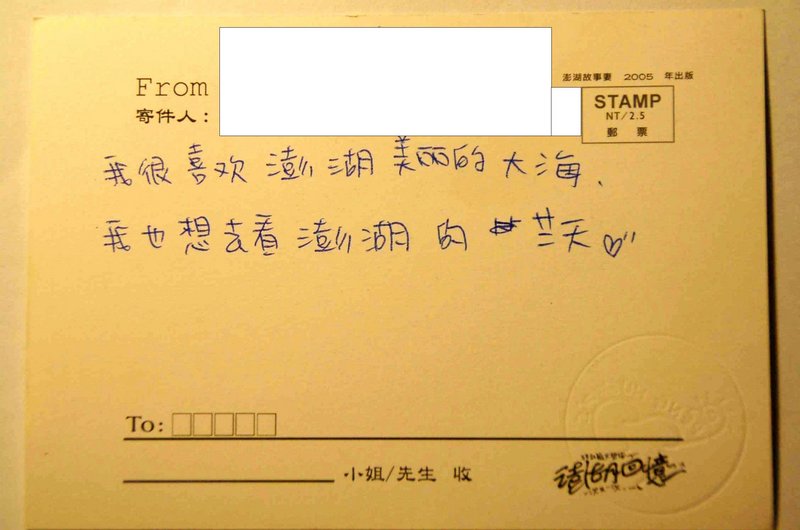 From
澎湖故事妻 2005 年出版
寄件人：
STAMP
NT/2.5
郵 票
我很喜欢澎湖美丽的大海、
我也想去看澎湖的 芸天♡
To:
小姐/先生 收
澎湖回憶